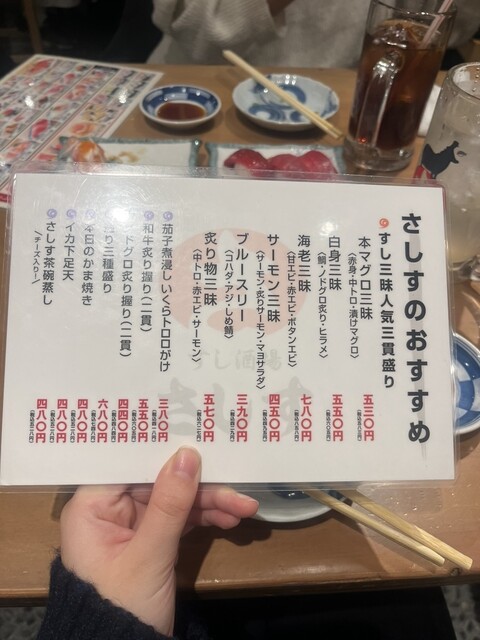 さしすのおすすめ
すし三昧人気三貫盛り
本マグロ三昧
(赤身・中トロ・漬けマグロ)
五三〇円
白身三昧
(鯛・ノドグロ炙り・ヒラメ)
五五〇円
海老三昧
(甘エビ・赤エビ・ボタンエビ)
七八〇円
サーモン三昧
(サーモン・炙りサーモン・マヨサラダ)
四五〇円
ブルースリー
(コハダ・アジ・しめ鯖)
三九〇円
炙り物三昧
(中トロ・赤エビ・サーモン)
五七〇円
茄子煮浸しいくらトロロがけ
三
和牛炙り握り(二貫)
五五〇円
ドグロ炙り握り(二貫)
四四〇円
り三種盛り
六八〇円
本日のかま焼き
四
イカ下足天
四八〇円
さしす茶碗蒸し
\チーズ入り!/
四八〇円
すし酒場
さしす